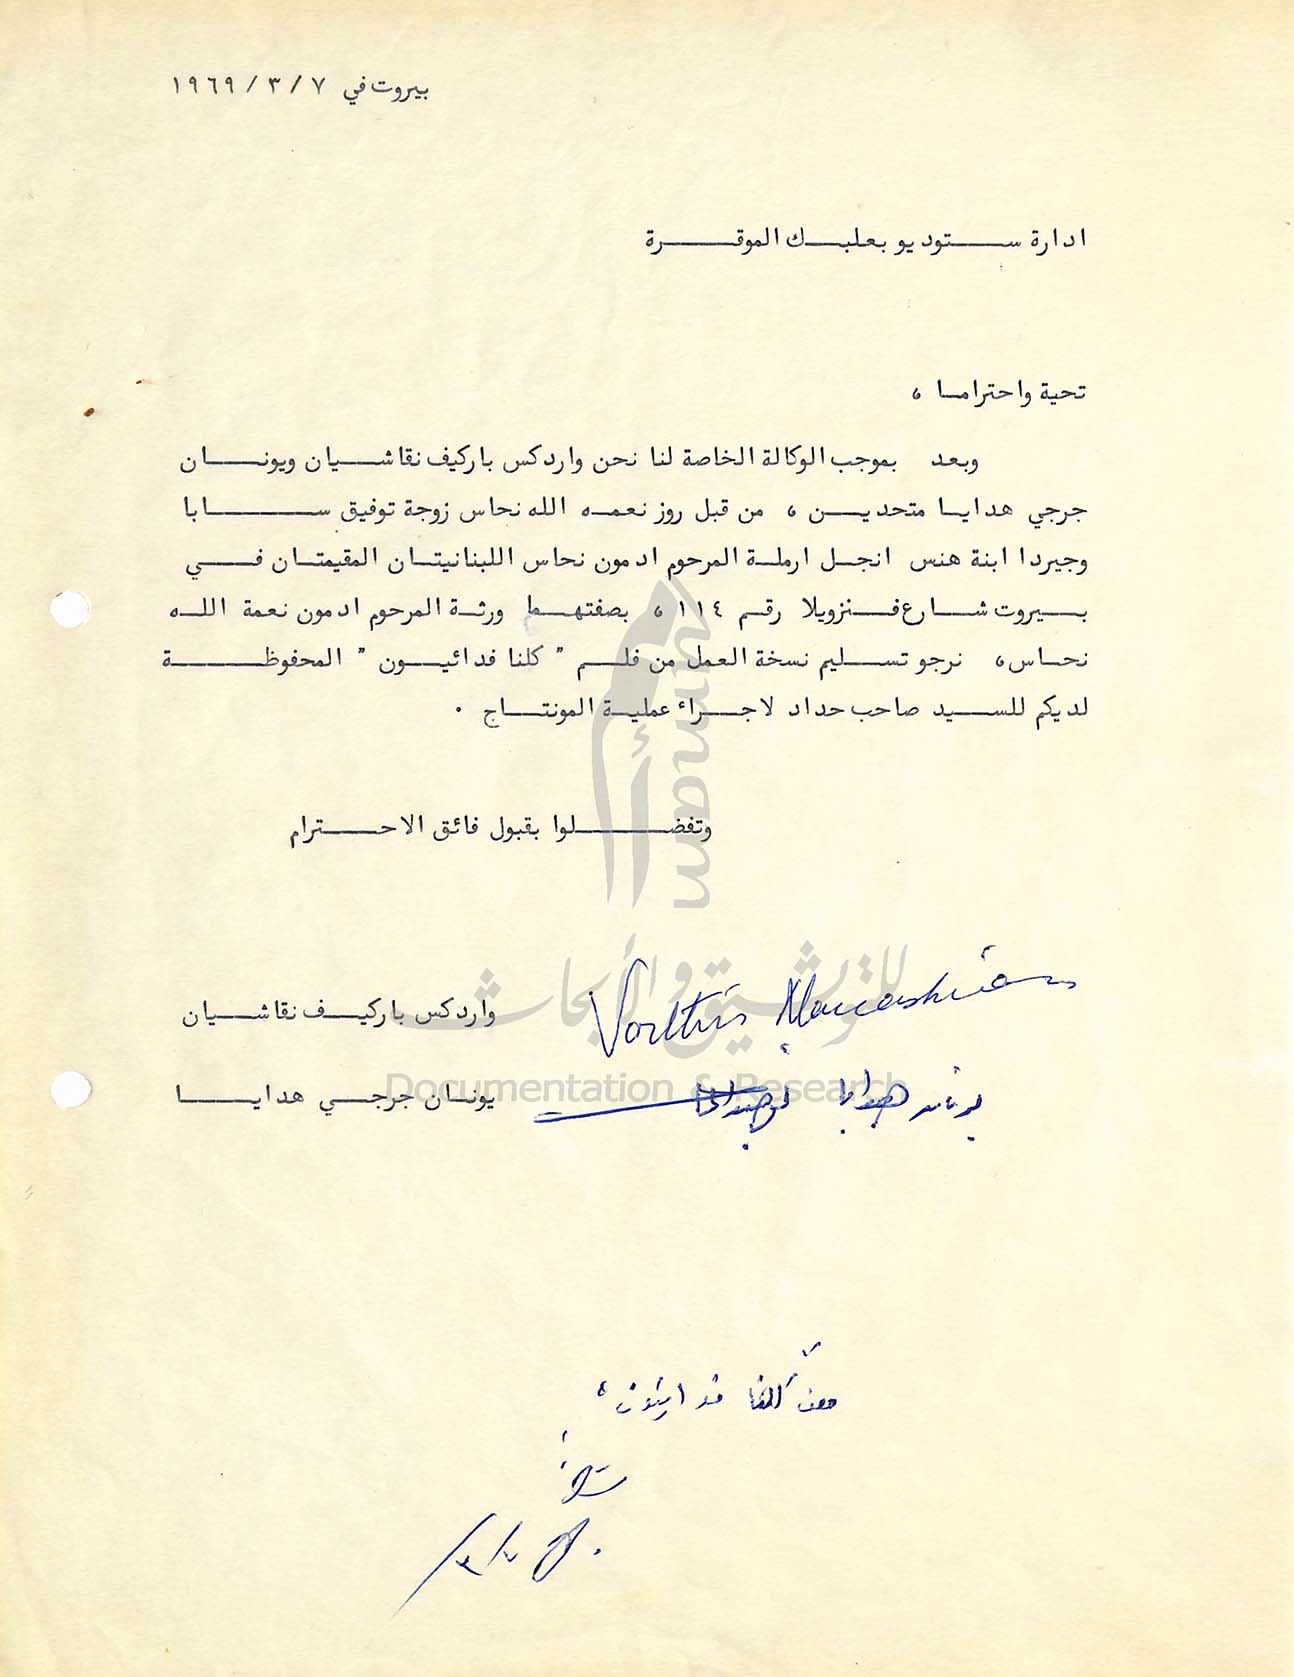 بيروت في ٧ / ٣ / ١٩٦٩
ادارة ستوديو بعلبك الموقرة
تحية واحتراما ،
وبعد بموجب الوكالة الخاصة لنا نحن واردكس باركيف نقاشيان ويونان
جرجي هدايا متحدين ، من قبل روز نعمه الله نحاس زوجة توفيق سابا
وجيردا ابنة هنس انجل ارملة المرحوم ادمون نحاس اللبنانيتان المقيمتان في
بيروت شارع فنزويلا رقم ١١٤ ، بصفتهما ورثة المرحوم ادمون نعمة الله
نحاس ، نرجو تسليم نسخة العمل من فلم " كلنا فدائيون " المحفوظة
لديكم للسيد صاحب حداد لاجراء عملية المونتاج .
وتفضلوا بقبول فائق الاحترام
واردكس باركيف نقاشيان
يونان جرجي هدايا
يونان هدايا
كلنا فدائيون
umam
أمم
للتوثيق والأبحاث
Documentation & Research